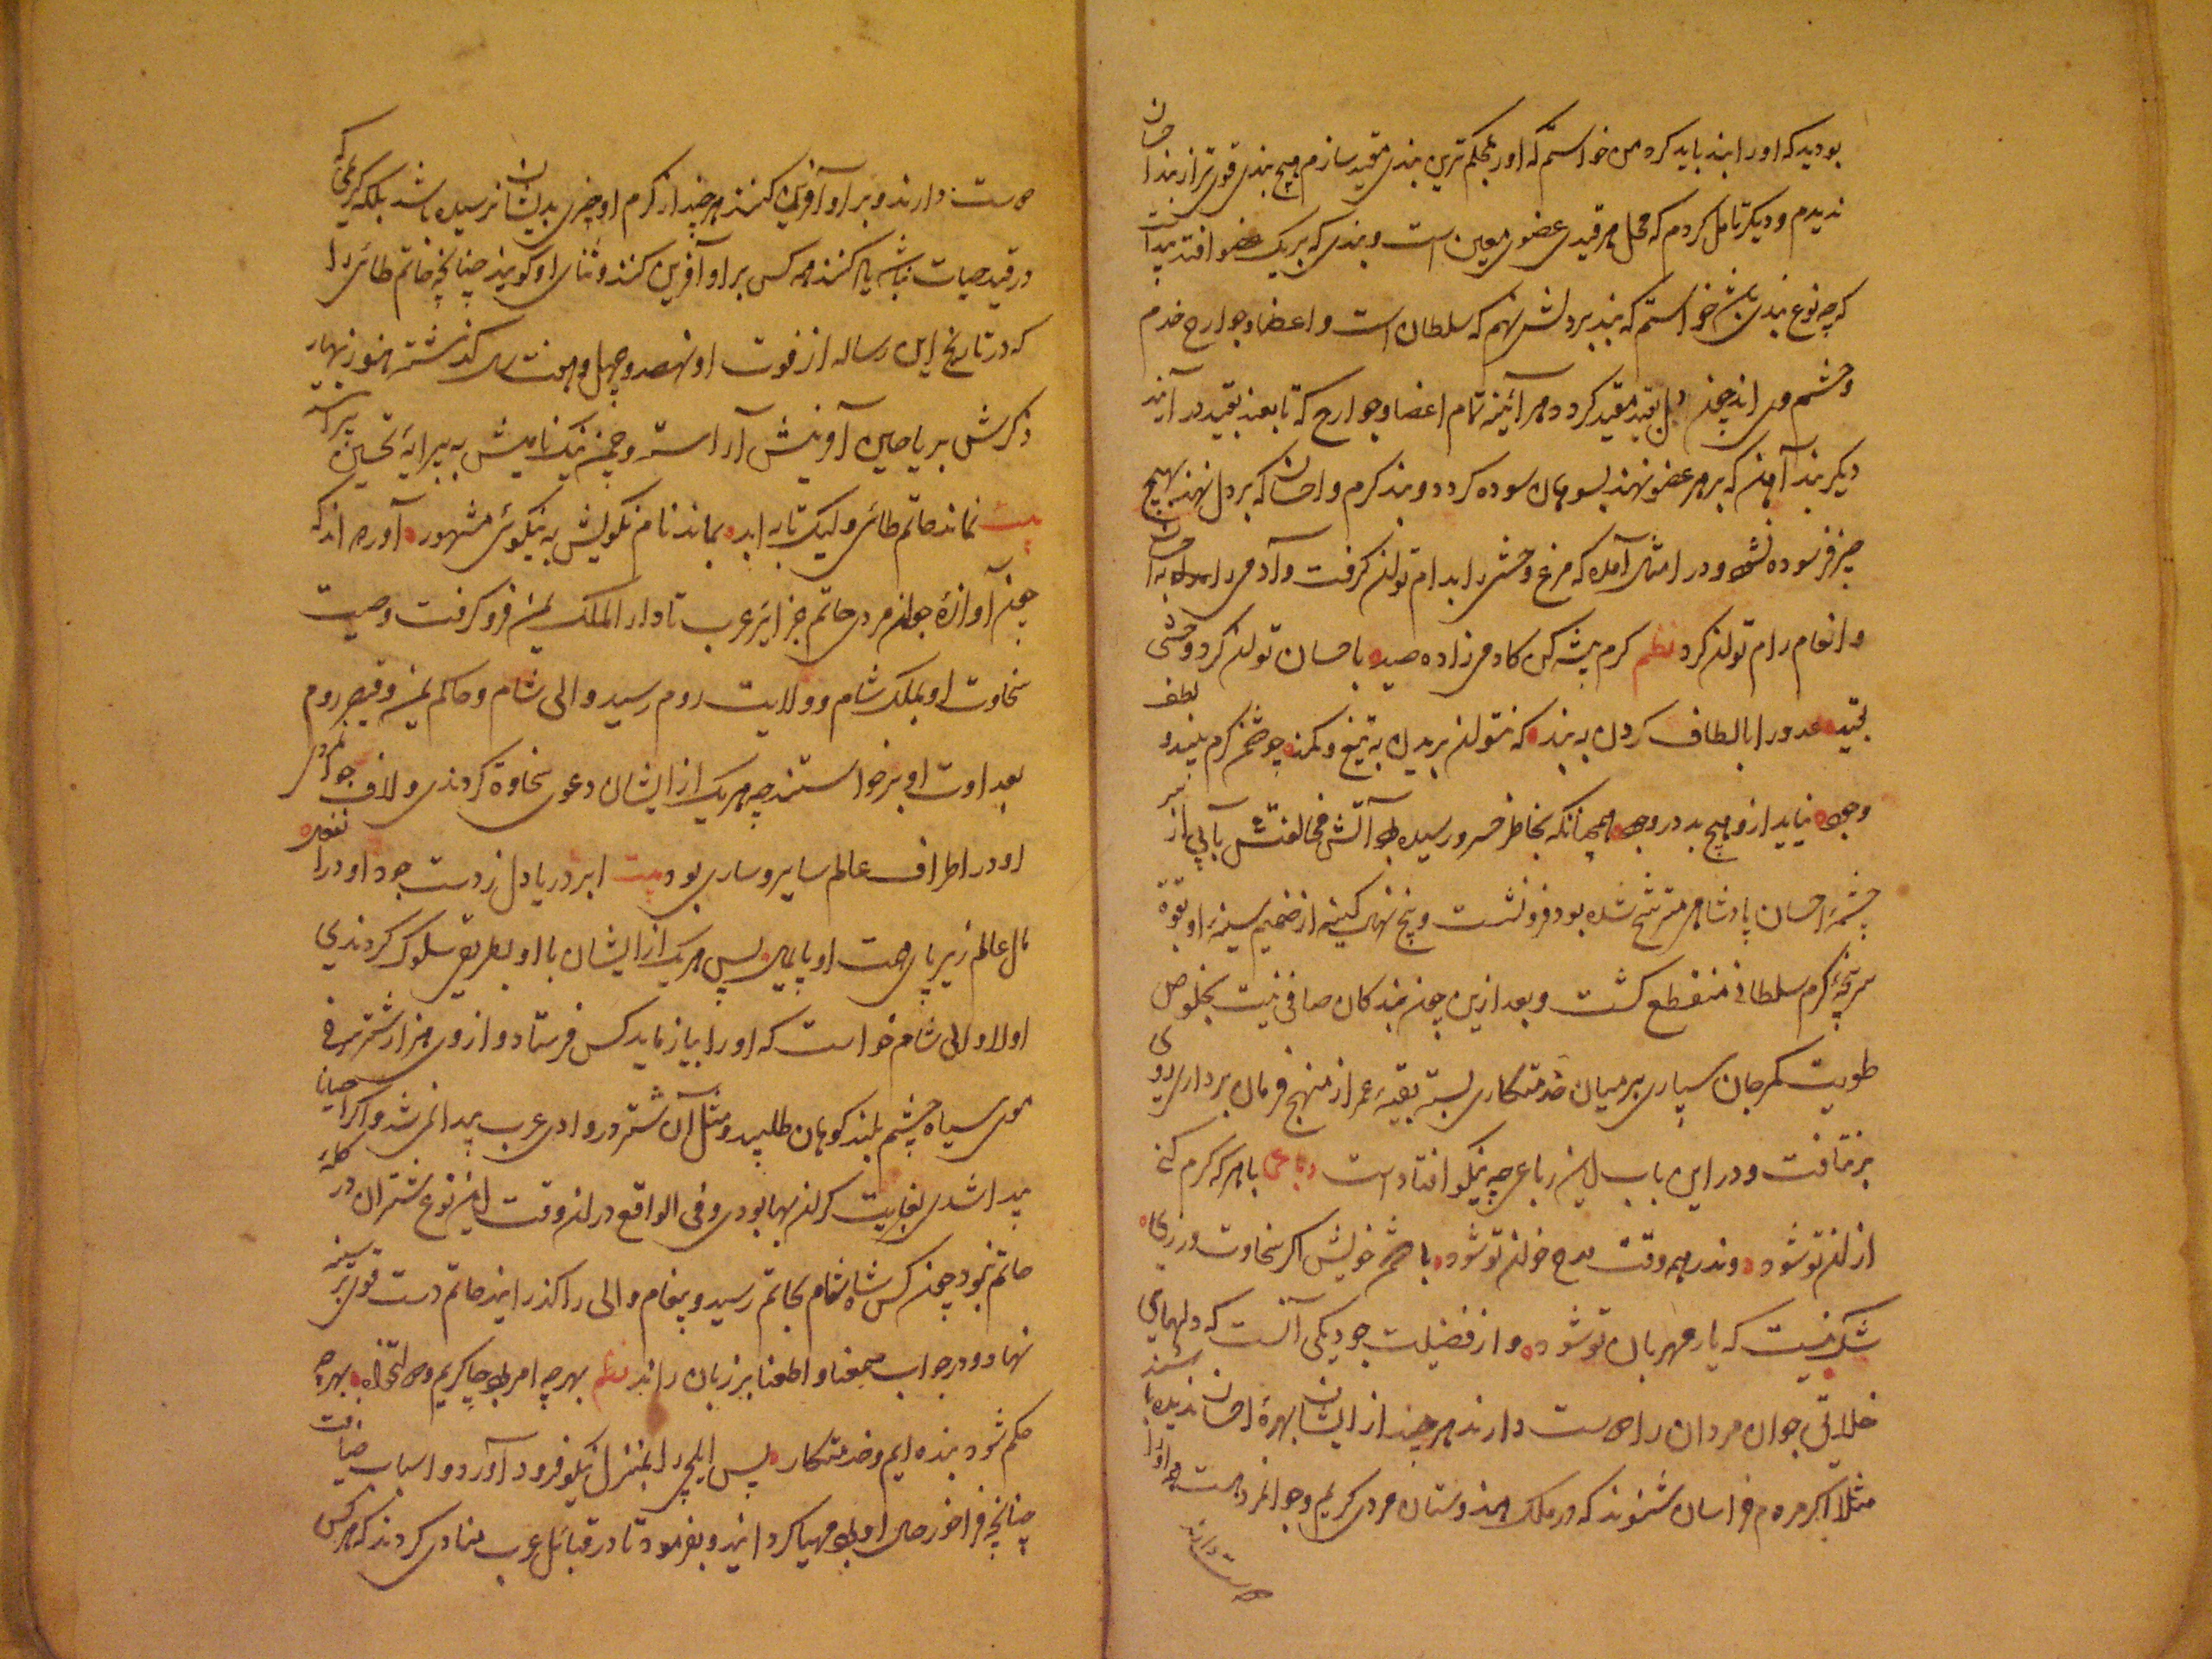 بودید که اورا بند باید کرد من خواستم که اورا بمحکم ترین بندی مقید سازم هیچ بندی قوی تر از بند احسان
ندیدم و دیکر تامل کردم که محل هر قیدی عضوی معین است و بندی که بر یک عضو افتد پیداست
که چه نوع بندی باشد خواستم که بند بر دلش نهم که سلطان است و اعضا و جوارح خدم
و حشم وی اند چون دل بقید مقید کردد هر آئینه تمام اعضا و جوارح که تابعند بقید در آیند
دیکر بند آهن که بر هر عضو نهند بسوهان سوده کردد و بند کرم و احسان که بر دل نهند بهیچ
چیز فرسوده نشود و در امثال آمده که مرغ وحشی را بدام توان کرفت و آدمی را به احسان
و انعام رام توان کرد نظم کرم پیشه کن کادمی زاده صید باحسان توان کرد وحشی
بقید عدو را بالطاف کردن به بند که نتوان بریدن به تیغ و کمند چو دشمن کرم بیند و لطف
وجود نیاید ازو هیچ بد در وجود همچنانکه بخاطر خسرو رسیده بود آتش مخالفتش بآبی که از
چشمهٔ احسان پادشاهی مترشح شده بود فرو نشست و بیخ نهال کینه از ضمیم سینهٔ او بقوة
سرپنجهٔ کرم سلطانی منقطع کشت و بعد ازین چون بندکان صافی نیت بخلوص
طویت کمر جان سپاری بر میان خدمتکاری بسته بقیهٔ عمر از منهج فرمان برداری روی
برنتافت و در این باب این رباعی چه نیکو افتاده است رباعی با هر که کرم کنی
از ان تو شود وندر همه وقت مدح خوان تو شود با دشمن خویش اکر سخاوت ورزی
شک نیست که یار مهربان تو شود و از فضیلت جود یکی آنست که دلهای
خلایق جوان مردان را دوست دارند هر چند از ایشان بهرهٔ احسان ندیده باشند
مثلا اکر مردم خراسان شنوند که در ملک هندوستان مردی کریم و جوانمرد هست همه او را
دوست دارند
دوست دارند و بر او آفرین کنند هر چند از کرم او چیزی بدیشان نرسیده باشد بلکه کریمی که
در قید حیات نباشد یاد کنند همه کس بر او آفرین کنند و ثنای او کویند چنانچه حاتم طائی را
که در تاریخ این رساله از فوت او نهصد و چهل و هفت سال کذشته هنوز بهار
ذکرش بریاحین آفرینش آراسته و چمن نیک نامیش به پیرایهٔ تحسین پیراسته
بیت نماند حاتم طائی ولیک تا به ابد بماند نام نکویش به نیکوئی مشهور آورده اند که
چون آوازهٔ جوان مردی حاتم جزایر عرب تا دار الملک یمن فرو کرفت و صیت
سخاوت او بملک شام و ولایت روم رسید والی شام و حاکم یمن و قیصر روم
بعداوت او برخواستند چه هر یک از ایشان دعوی سخاوة کردندی و لاف جوانمردی
او در اطراف عالم سایر و ساری بود بیت ابر دریا دل ز دست جود او در انفعال
مال عالم زیر پای همت او پایمال پس هر یک از ایشان با او بطریقی سلوک کردندی
اولا والی شام خواست که او را بیازماید کس فرستاد و از وی هزار شتر سرخ
موی سیاه چشم بلند کوهان طلبید و مثل آن شتر در وادی عرب پیدا نمی شد و اکر احیانا
پیدا شدی بغایت کران بها بودی و فی الواقع در ان وقت این نوع شتران در کلهٔ
حاتم نبود چون کس شاه شام بحاتم رسید و پیغام والی را کذرانید حاتم دست قبول بر سینه
نهاد و در جواب سمعنا و اطعنا بر زبان راند نظم بهر چه امر بود چاکریم و دولتخواه بهر چه
حکم شود بنده ایم و خدمتکار پس ایلچی را بمنزل نیکو فرود آورد و اسباب ضیافت
چنانچه فراخور حال او بود مهیا کردانید و بفرمود تا در قبائل عرب منادی کردند که هر کس